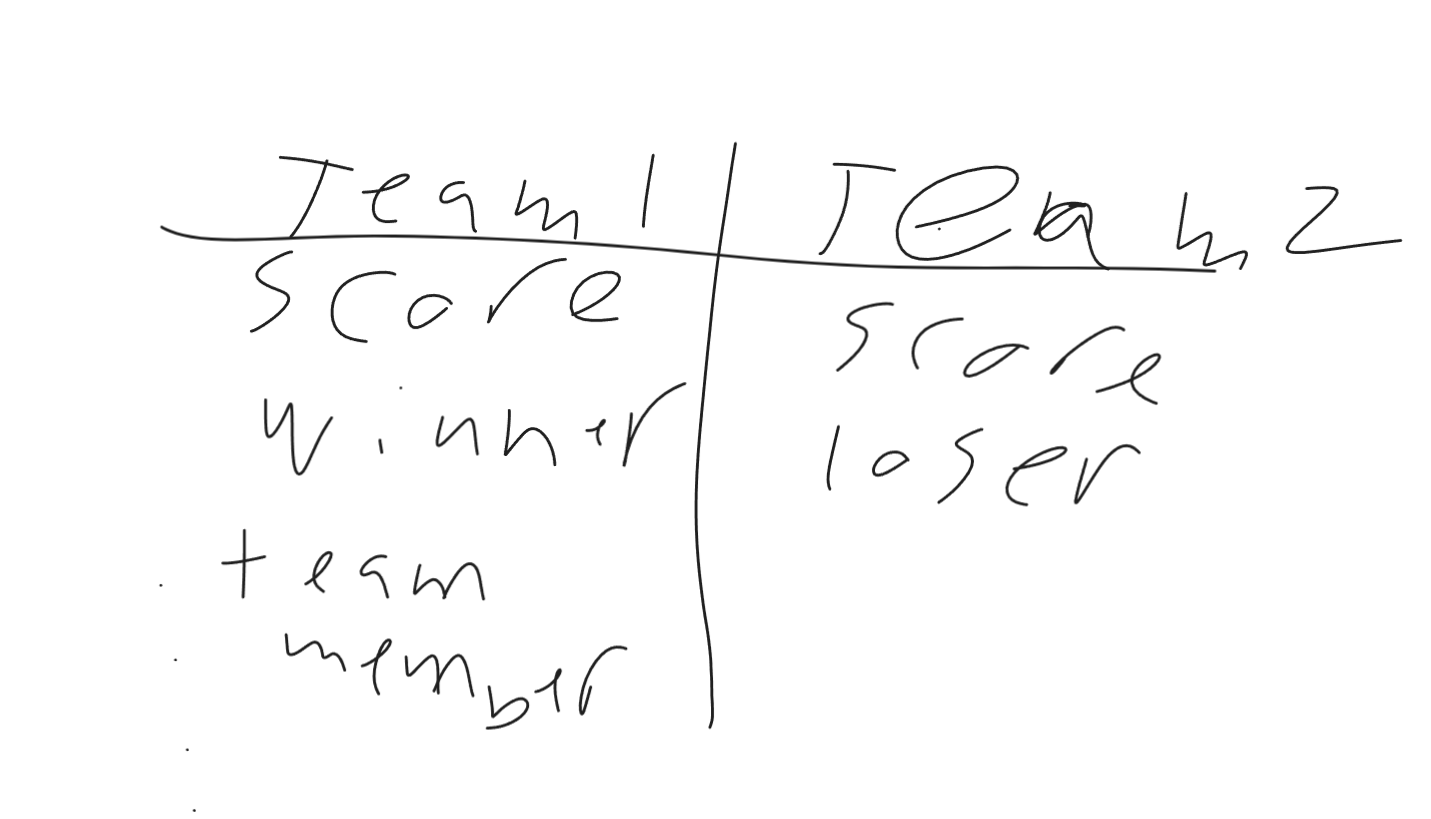 Team 1 Team 2
score
score
winner
loser
team
member